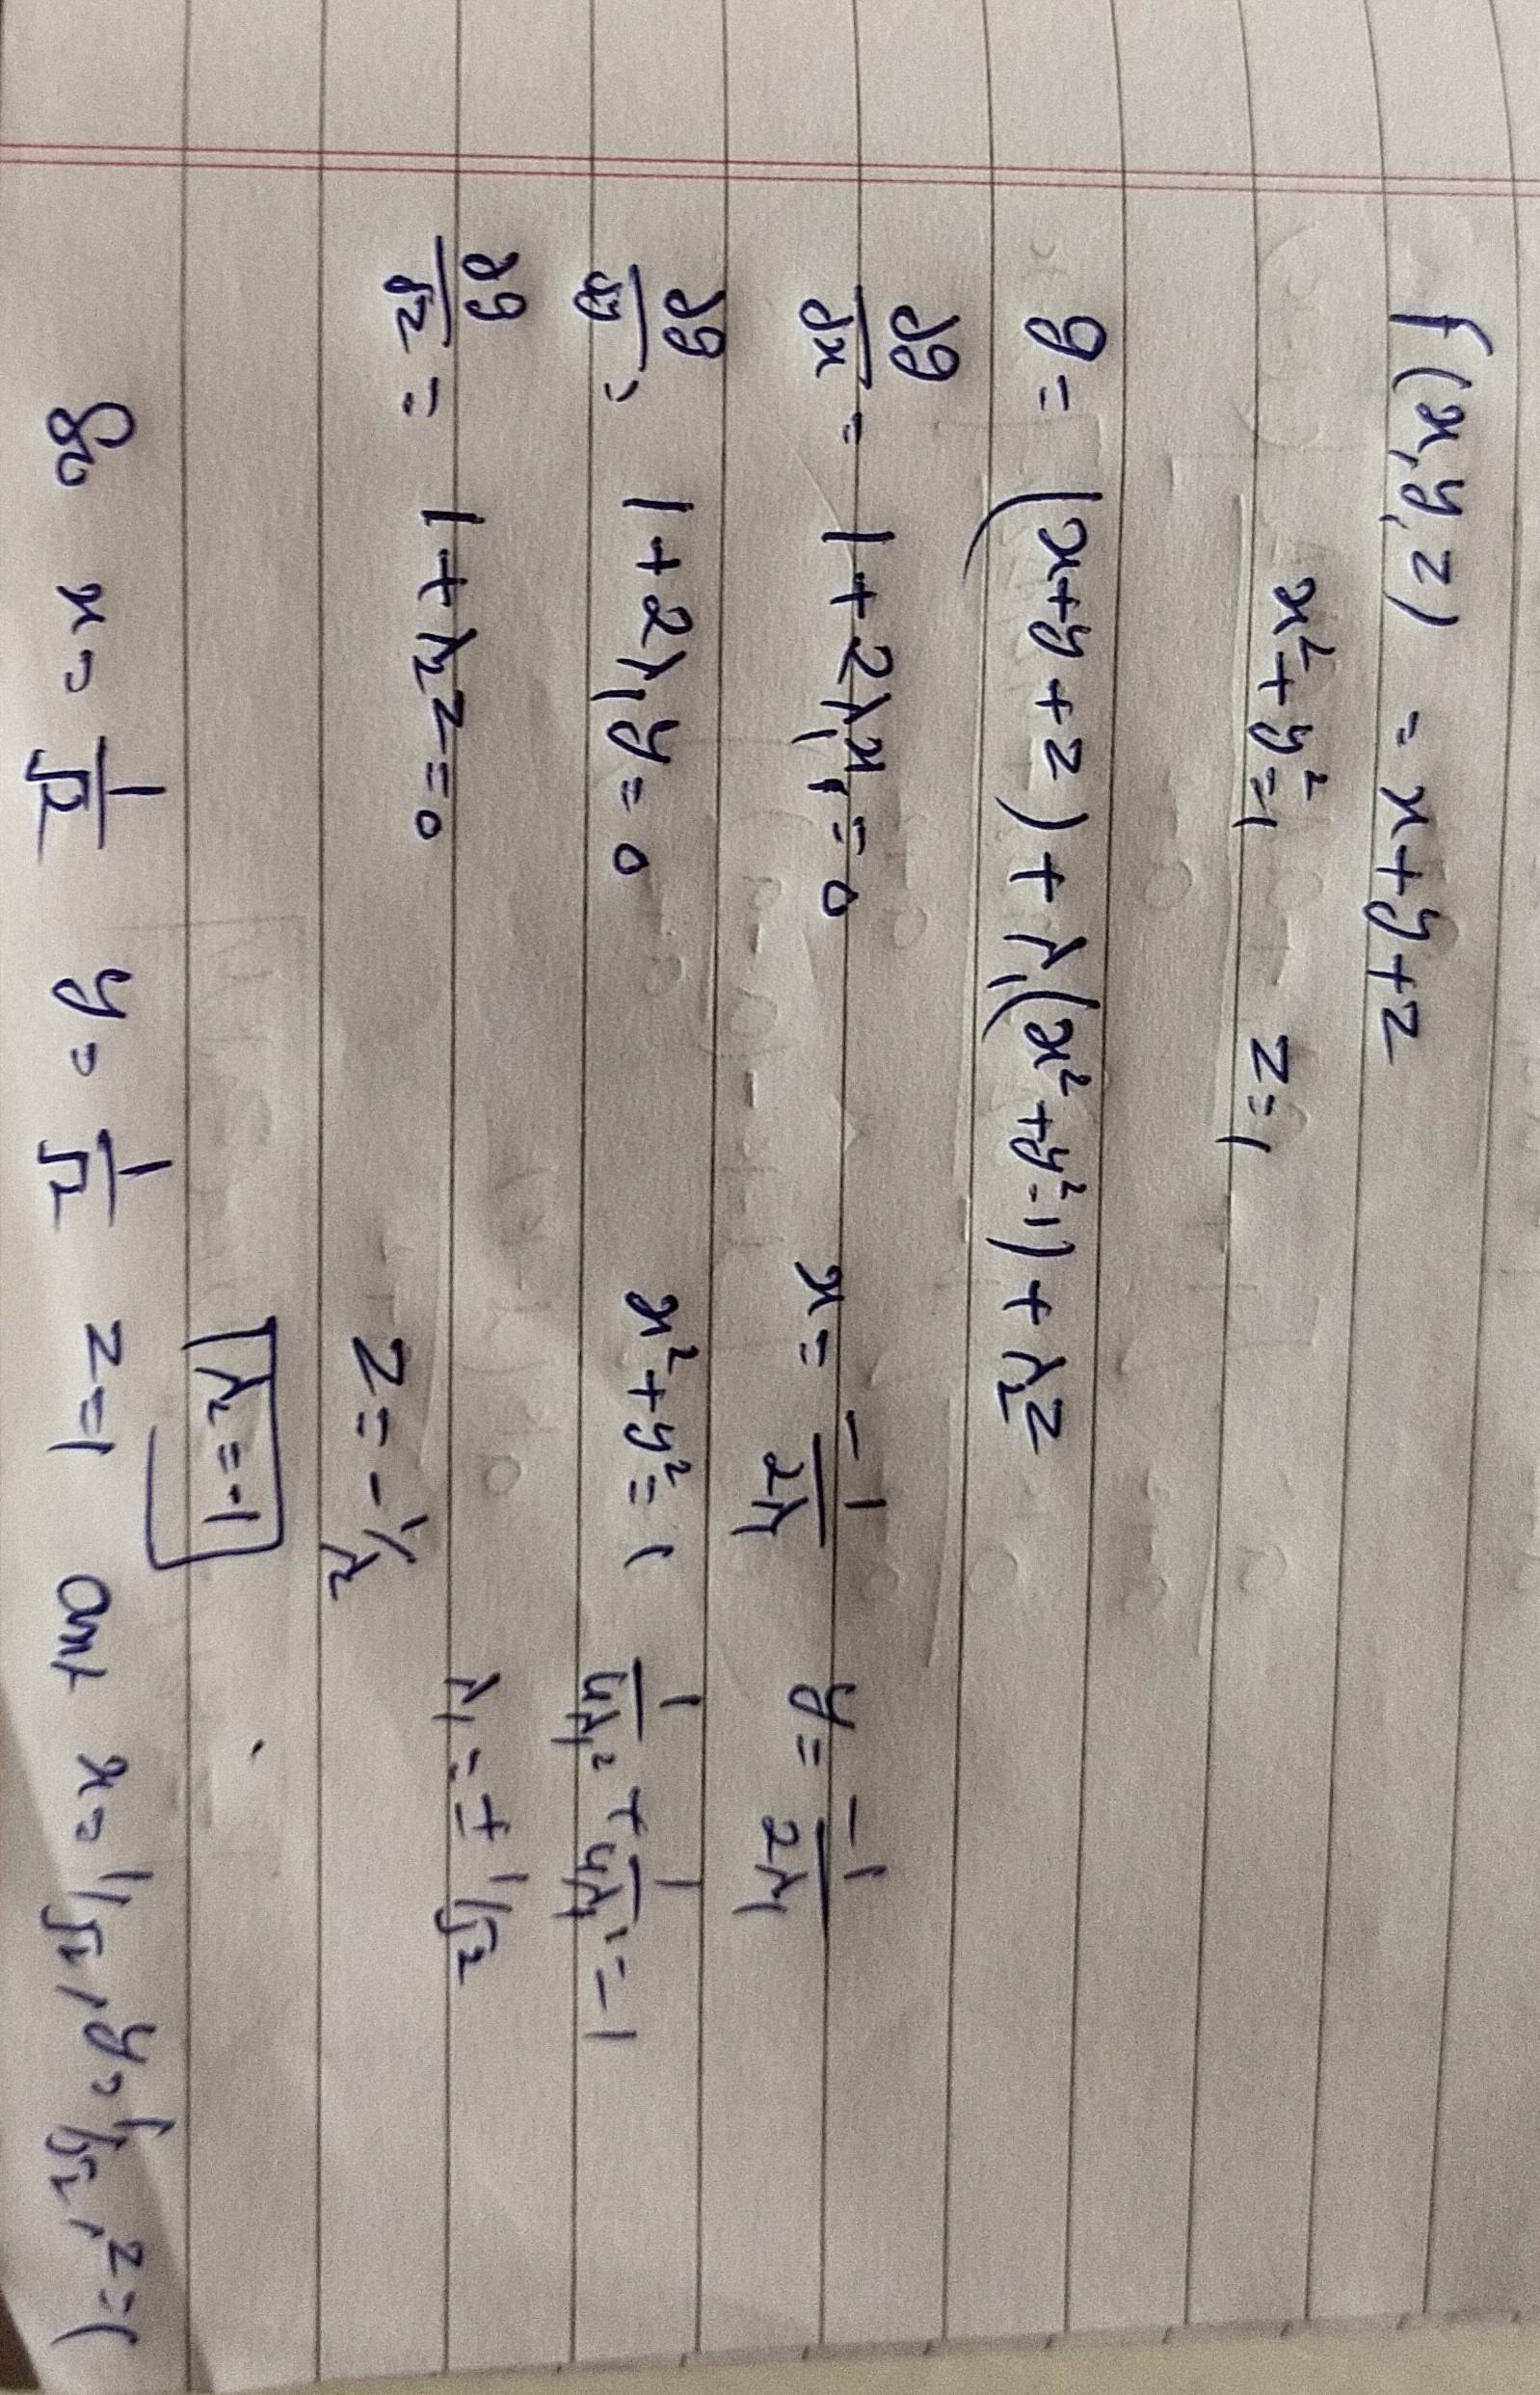 f(x,y,z) = x+y+z
x²+y²=1 z=1
g = (x+y+z) + λ₁(x²+y²-1) + λ₂z
∂g/∂x = 1+2λ₁x = 0 x = -1/2λ₁ y = -1/2λ₁
∂g/∂y = 1+2λ₁y = 0 x²+y²=1, 1/4λ₁² + 1/4λ₁² = 1
∂g/∂z = 1+λ₂=0 λ₁ = ∓1/√2
z = -1/λ₂
λ₂=-1
so x = 1/√2 y = 1/√2 z=1 x=1/√2, y=1/√2, z=1